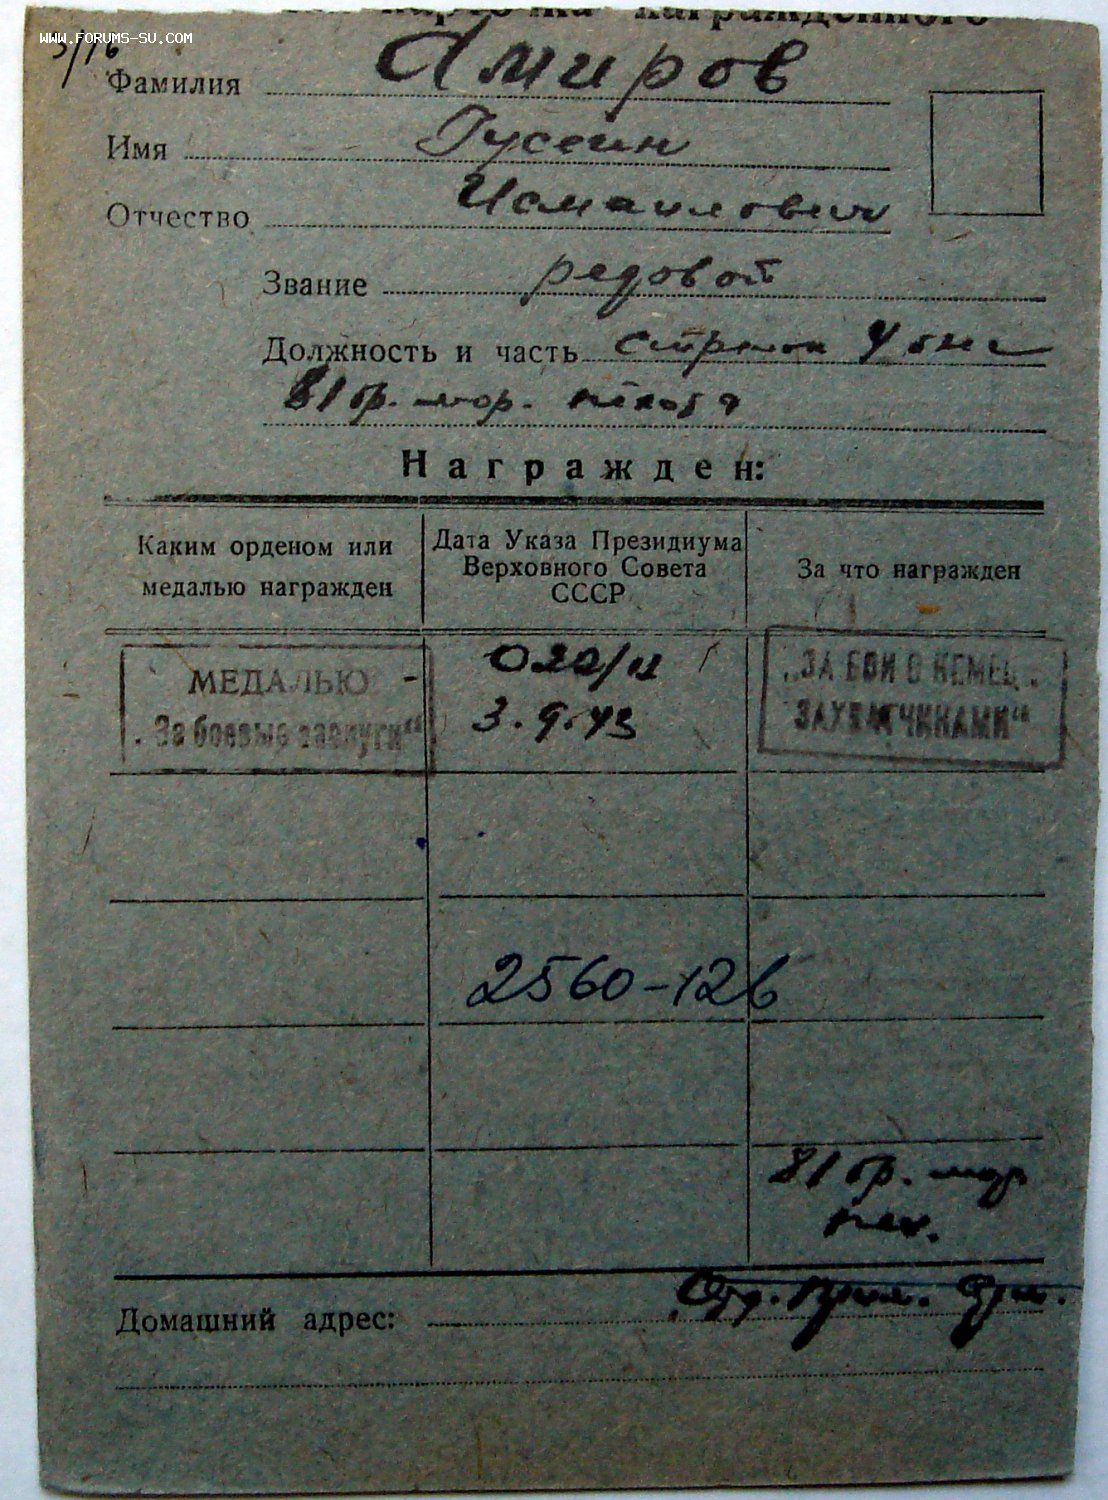 карточка награжденного
www.forums-su.com
3/16
Фамилия Амиров
Имя Гусеин
Отчество Исмаилович
Звание редовой
Должность и часть стрелок
81 бр. мор. пехота
Награжден:
Каким орденом или медалью награжден
Дата Указа Президиума Верховного Совета СССР
За что награжден
МЕДАЛЬЮ -
"За боевые заслуги"
020/н
3.9.43
"ЗА БОИ С НЕМЕЦ.
ЗАХВАТЧИКАМИ"
2560-126
81 бр. мор
пех.
Домашний адрес: Отд. Прим. Арм.